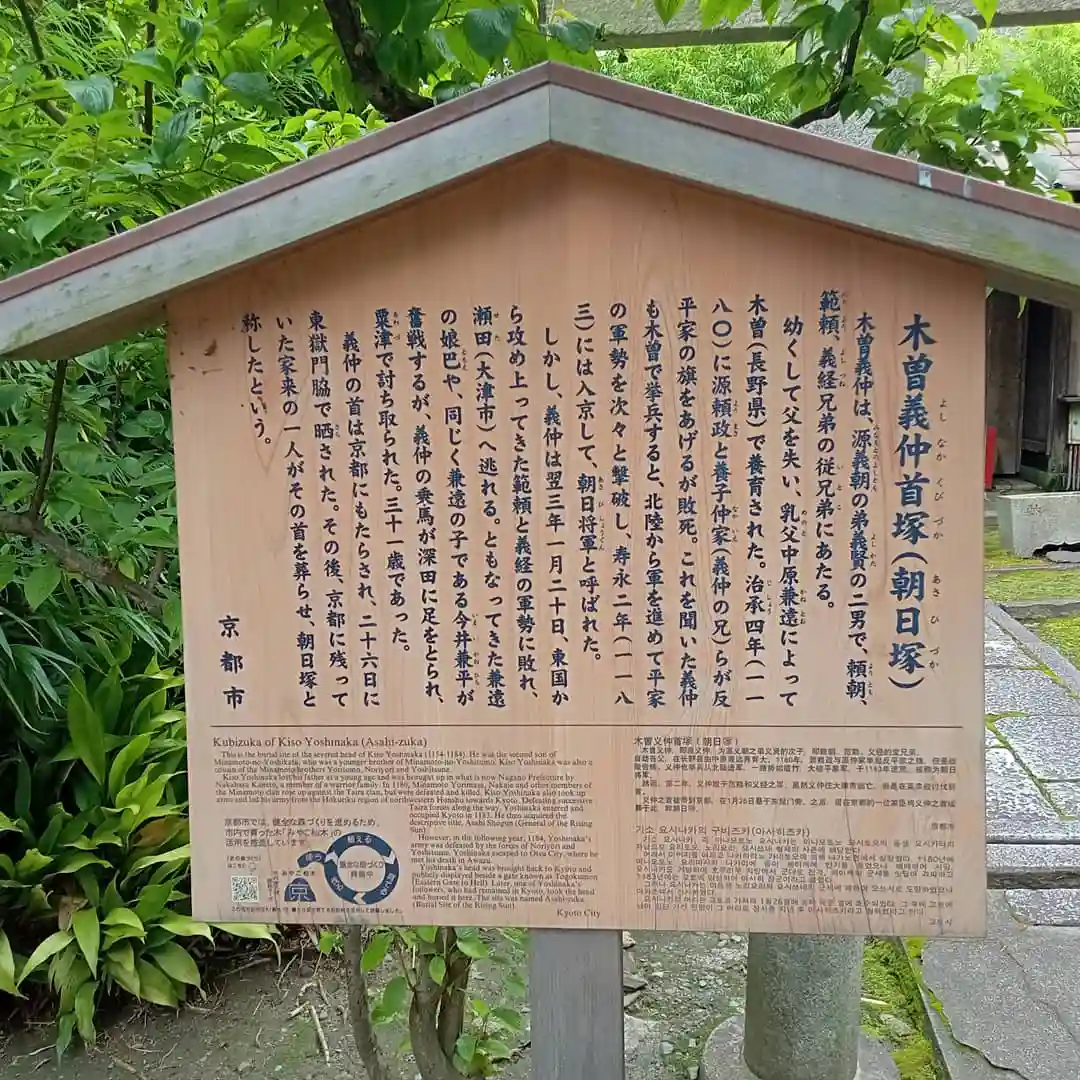 木曽義仲首塚(朝日塚)
木曽義仲は、源義朝の弟義賢の二男で、頼朝、
範頼、義経兄弟の従兄弟にあたる。
幼くして父を失い、乳父中原兼遠によって
木曽(長野県)で養育された。治承四年(一一
八〇)に源頼政と養子仲家(義仲の兄)らが反
平家の旗をあげるが敗死。これを聞いた義仲
も木曽で挙兵すると、北陸から軍を進めて平家
の軍勢を次々と撃破し、寿永二年(一一八
三)には入京して、朝日将軍と呼ばれた。
しかし、義仲は翌三年一月二十日、東国か
ら攻め上ってきた範頼と義経の軍勢に敗れ、
瀬田(大津市)へ逃れる。ともなってきた兼遠
の娘巴や、同じく兼遠の子である今井兼平が
奮戦するが、義仲の乗馬が深田に足をとられ、
粟津で討ち取られた。三十一歳であった。
義仲の首は京都にもたらされ、二十六日に
東獄門脇で晒された。その後、京都に残って
いた家来の一人がその首を葬らせ、朝日塚と
称したという。
京都市
Kubizuka of Kiso Yoshinaka (Asahi-zuka)
This is the burial site of the severed head of Kiso Yoshinaka (1154-1184). He was the second son of
Minamoto-no-Yoshikata, who was a younger brother of Minamoto-no-Yoshitomo. Kiso Yoshinaka was also a
cousin of the Minamoto brothers Yoritomo, Noriyori and Yoshitsune.
Kiso Yoshinaka lost his father at a young age and was brought up in what is now Nagano Prefecture by
Nakahara Kaneto, a member of a warrior family. In 1180, Minamoto Yorimasa, Nakaie and other members of
the Minamoto clan rose up against the Taira clan, but were defeated and killed. Kiso Yoshinaka also took up
arms and led his army from the Hokuriku region of northwestern Honshu towards Kyoto. Defeating successive
Taira forces along the way, Yoshinaka entered and
occupied Kyoto in 1183. He then acquired the
descriptive title, Asahi Shogun (General of the Rising
Sun)
However, in the following year, 1184, Yoshinaka's
army was defeated by the forces of Noriyori and
Yoshitsune. Yoshinaka escaped to Otsu City, where he
met his death in Awazu.
Yoshinaka's head was brought back to Kyoto and
publicly displayed beside a gate known as Togokumon
(Eastern Gate to Hell). Later, one of Yoshinaka's
followers, who had remained in Kyoto, took the head
and buried it here. The site was named Asahi-zuka
(Burial Site of the Rising Sun).
Kyoto City
京都市では、健全な森づくりを進めるため、
市内で育った木「みやこ杣木」の
活用を推進しています。
木曽义仲首塚(朝日塚)
기소 요시나카의 구비즈카(아사히즈카)